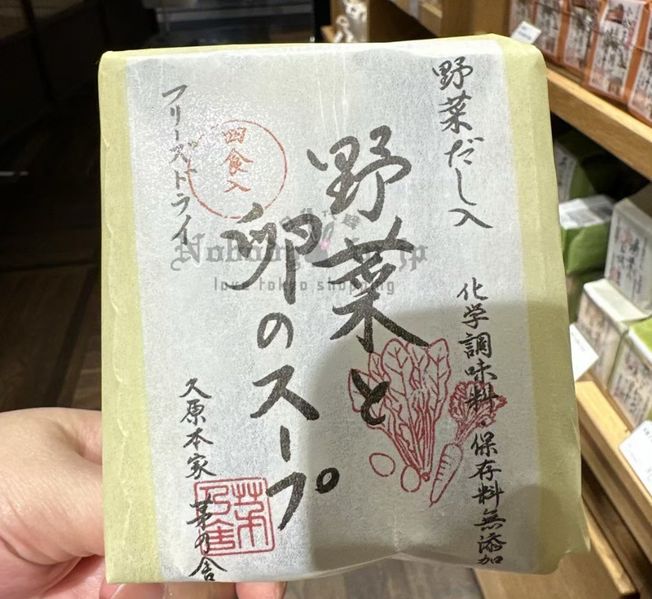 野菜だし入
化学調味料・保存料無添加
野菜と
卵のスープ
四食入
フリーズドライ
久原本家 茅乃舎
茅乃舎
love tokyo shopping